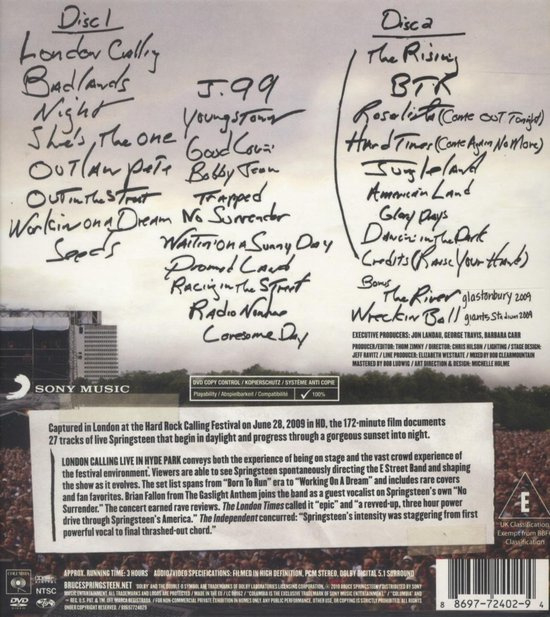 Disc 1
London Calling
Badlands
Night
She's The One
Outlaw Pete
Out in the Street
Workin on a Dream
Seeds
J. 99
Youngstown
Good Lovin'
Bobby Jean
Trapped
No Surrender
Waitin' on a Sunny Day
Promised Land
Racing in the Street
Radio Nowhere
Lonesome Day
Disc 2
The Rising
BTR
Rosalita (Come Out Tonight)
Hard Times (Come Again No More)
Jungleland
American Land
Glory Days
Dancin' in The Dark
Credits (Raise Your Hand)
Bonus
The River glastonbury 2009
Wreckin Ball giants stadium 2009
EXECUTIVE PRODUCERS: JON LANDAU, GEORGE TRAVIS, BARBARA CARR
PRODUCER/EDITOR: THOM ZIMNY / DIRECTOR: CHRIS HILSON / LIGHTING / STAGE DESIGN:
JEFF RAVITZ / LINE PRODUCER: ELIZABETH WESTRATE / MIXED BY BOB CLEARMOUNTAIN
MASTERED BY BOB LUDWIG / ART DIRECTION & DESIGN: MICHELLE HOLME
SONY MUSIC
DVD COPY CONTROL / KOPIERSCHUTZ / SYSTÈME ANTI COPIE
Playability / Abspielbarkeit / Compatibilité ✓ 100%
Captured in London at the Hard Rock Calling Festival on June 28, 2009 in HD, the 172-minute film documents
27 tracks of live Springsteen that begin in daylight and progress through a gorgeous sunset into night.
LONDON CALLING LIVE IN HYDE PARK conveys both the experience of being on stage and the vast crowd experience of
the festival environment. Viewers are able to see Springsteen spontaneously directing the E Street Band and shaping
the show as it evolves. The set list spans from "Born To Run" era to "Working On A Dream" and includes rare covers
and fan favorites. Brian Fallon from The Gaslight Anthem joins the band as a guest vocalist on Springsteen's own "No
Surrender." The concert earned rave reviews. The London Times called it "epic" and "a revved-up, three hour power
drive through Springsteen's America." The Independent concurred: "Springsteen's intensity was staggering from first
powerful vocal to final thrashed-out chord."
E
UK Classification
Exempt from BBFC
Classification
COLUMBIA
DVD
NTSC
APPROX. RUNNING TIME: 3 HOURS AUDIO/VIDEO SPECIFICATIONS: FILMED IN HIGH DEFINITION, PCM STEREO, DOLBY DIGITAL 5.1 SURROUND
BRUCESPRINGSTEEN.NET
8 8697-72402-9 4